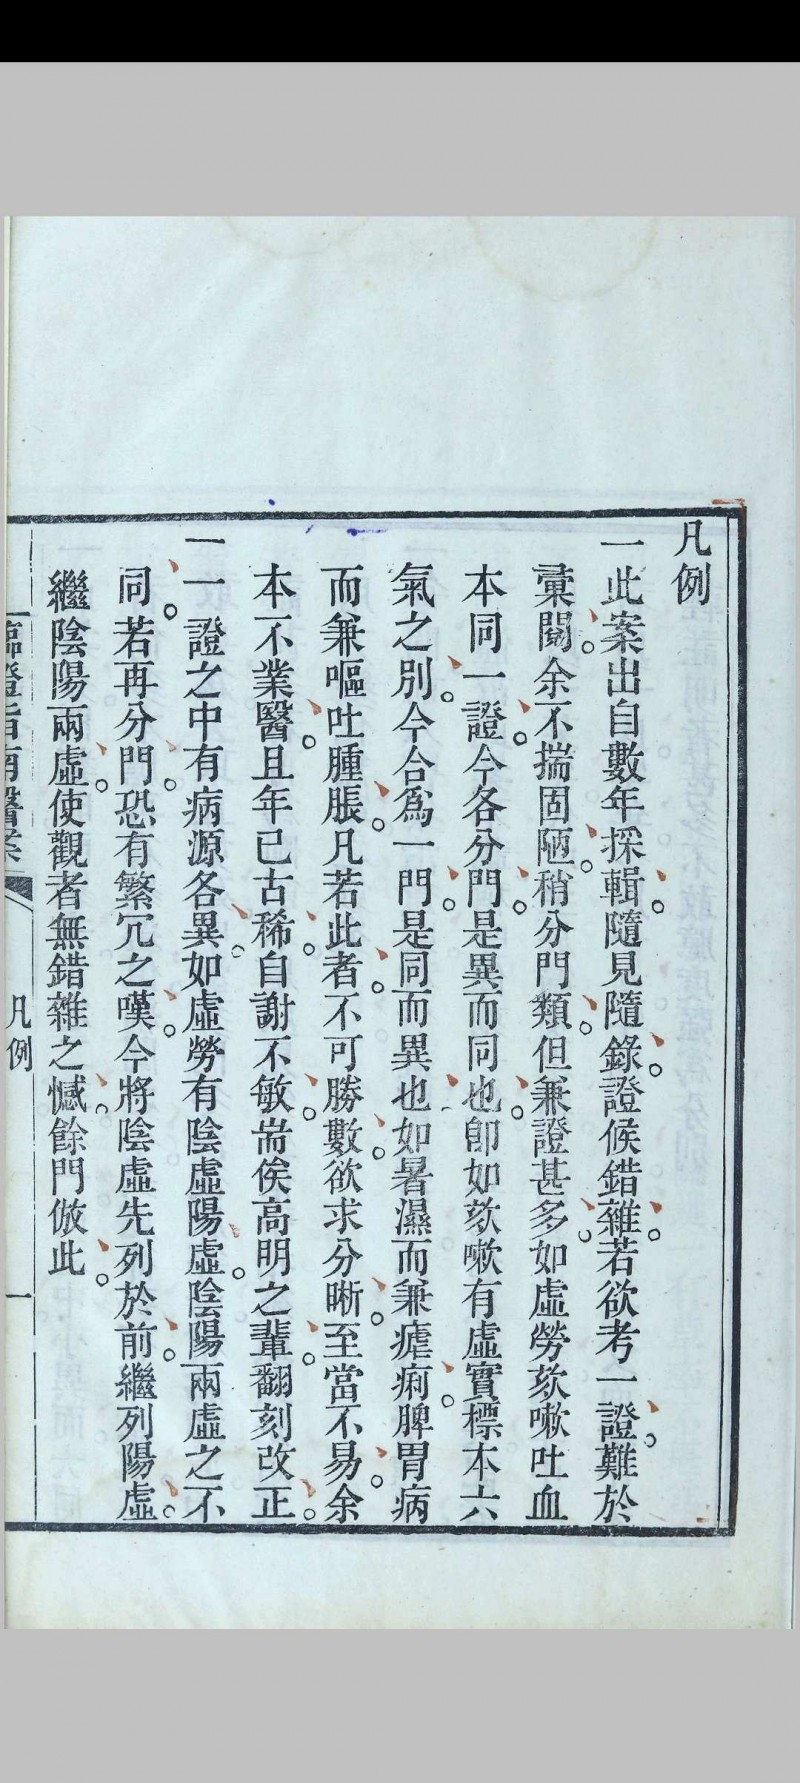 凡例
一此案出自數年採輯隨見隨錄證候錯雜若欲考一證難於
彙閱余不揣固陋稍分門類但兼證甚多如虛勞欬嗽吐血
本同一證今各分門是異而同也卽如欬嗽有虛實標本六
氣之別今合爲一門是同而異也如暑濕而兼瘧痢脾胃病
而兼嘔吐腫脹凡若此者不可勝數欲求分晰至當不易余
本不業醫且年已古稀自謝不敏耑俟高明之輩翻刻改正
一一證之中有病源各異如虛勞有陰虛陽虛陰陽兩虛之不
同若再分門恐有繁冗之嘆今將陰虛先列於前繼列陽虛
繼陰陽兩虛使觀者無錯雜之憾餘門倣此
臨證指南醫案
凡例
一